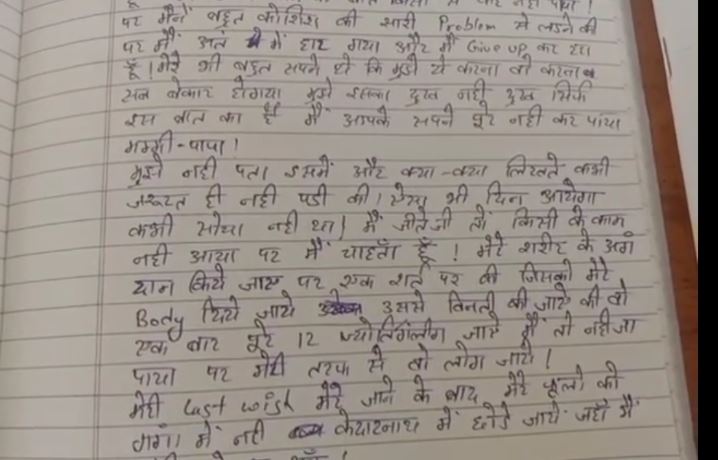 पर मैंने बहुत कोशिश की सारी Problem से लडने की
पर मैं अतं में हार गया और मैं Give up कर रहा
हूँ! मेरे भी बहुत सपने थे कि मुझे ये करना वो करना
सब बेकार होगया मुझे इसका दुख नही दुख सिर्फ
इस बात का है मैं आपके सपने पूरे नही कर पाया
मम्मी-पापा!
मुझे नही पता इसमें और क्या-क्या लिखते कभी
जरूरत ही नही पडी की। ऐसा भी दिन आयेगा
कभी सोचा नही था। मैं जीतेजी तो किसी के काम
नही आया पर मैं चाहता हूँ! मेरे शरीर के अगं
दान किये जाए पर एक शर्त पर की जिसको मेरे
Body दिये जाये उससे विनती की जाऐ की वो
एक बार पूरे 12 ज्योतिर्लिंग जाऐ मैं तो नही जा
पाया पर मेरी तरफ से वो लोग जाये!
मेरी Last wish मेरे जाने के बाद मेरे फूलो को
गगां में नही केदारनाथ में छोडे जाये जहाँ मैं